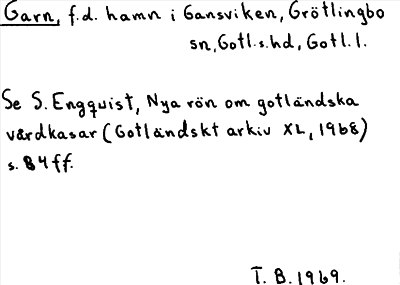 Garn, f.d. hamn i Gansviken, Grötlingbo
sn, Gotl.s.hd, Gotl.l.
Se S. Engquist, Nya rön om gotländska
vårdkasar (Gotländskt arkiv XL, 1968)
s. 84ff.
T. B. 1969.